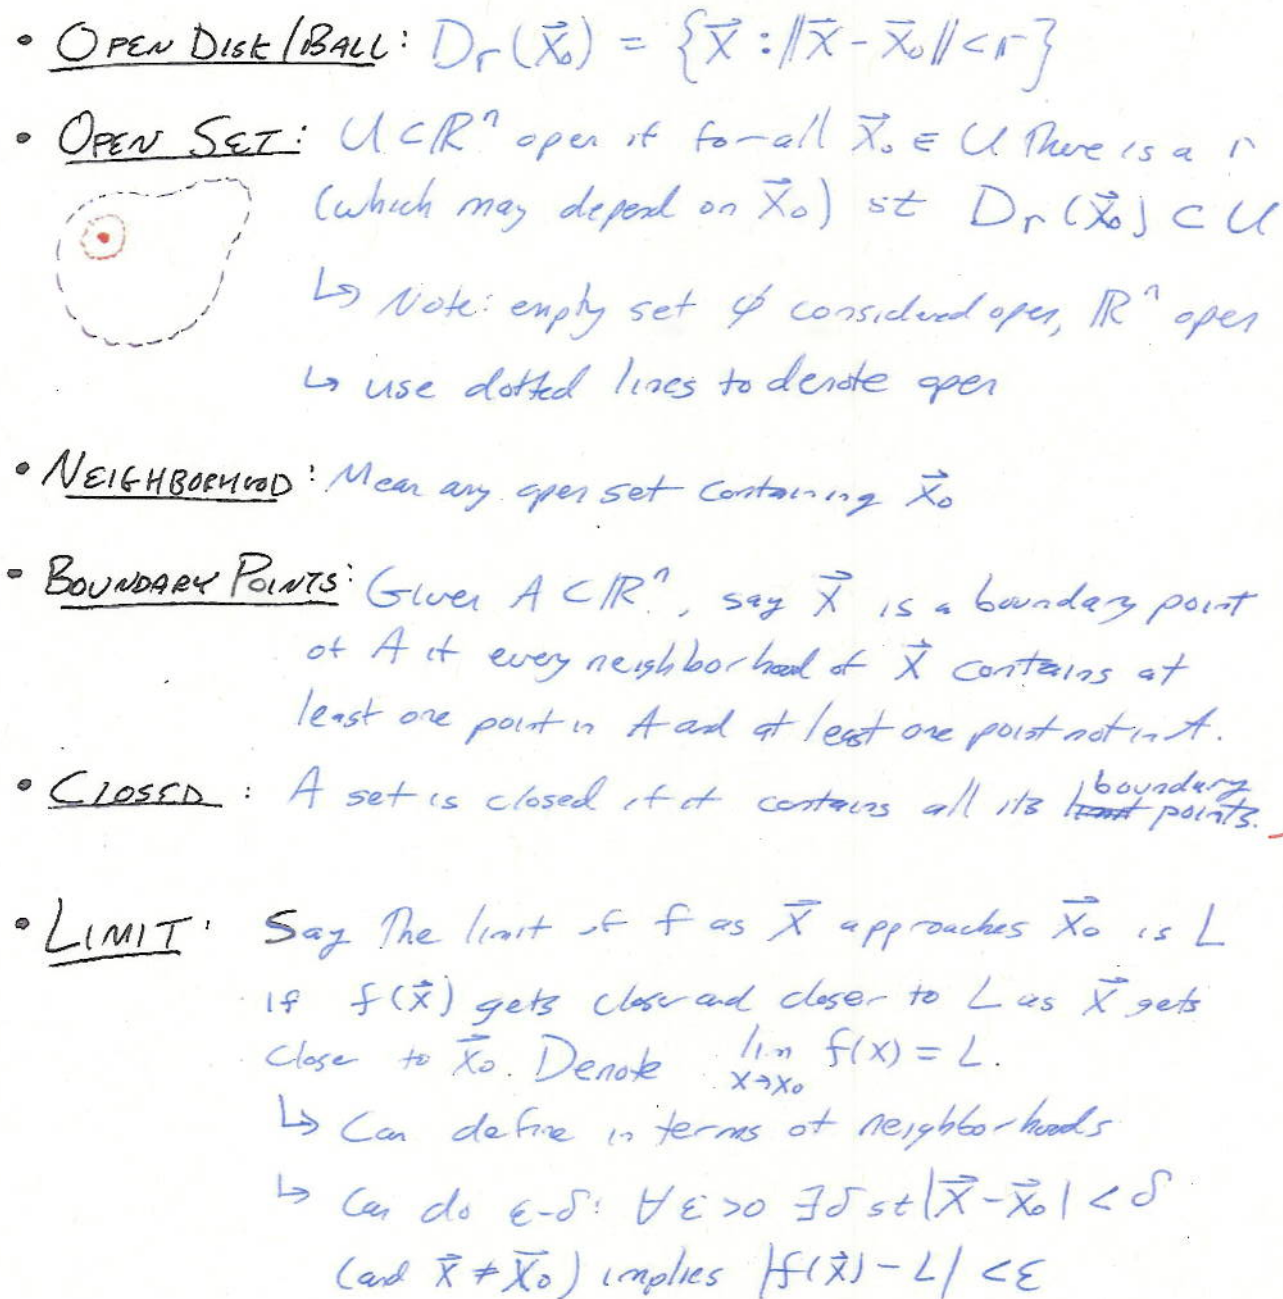 • OPEN DISK/BALL: Dr(x⃗₀) = {x⃗ : ||x⃗ - x⃗₀|| < r}
• OPEN SET: U ⊂ ℝⁿ open if for all x⃗₀ ∈ U There is a r
(which may depend on x⃗₀) st Dr(x⃗₀) ⊂ U
↳ Note: empty set ∅ considered open, ℝⁿ open
↳ use dotted lines to denote open
• NEIGHBORHOOD: Mean any open set containing x⃗₀
• BOUNDARY POINTS: Given A ⊂ ℝⁿ, say x⃗ is a boundary point
of A if every neighborhood of x⃗ contains at
least one point in A and at least one point not in A.
• CLOSED: A set is closed if it contains all its boundary points.
• LIMIT: Say The limit of f as x⃗ approaches x⃗₀ is L
if f(x⃗) gets closer and closer to L as x⃗ gets
close to x⃗₀. Denote lim x→x₀ f(x) = L.
↳ Can define in terms of neighborhoods
↳ Can do ε-δ: ∀ε>0 ∃δ st |x⃗ - x⃗₀| < δ
(and x⃗ ≠ x⃗₀) implies |f(x⃗) - L| < ε